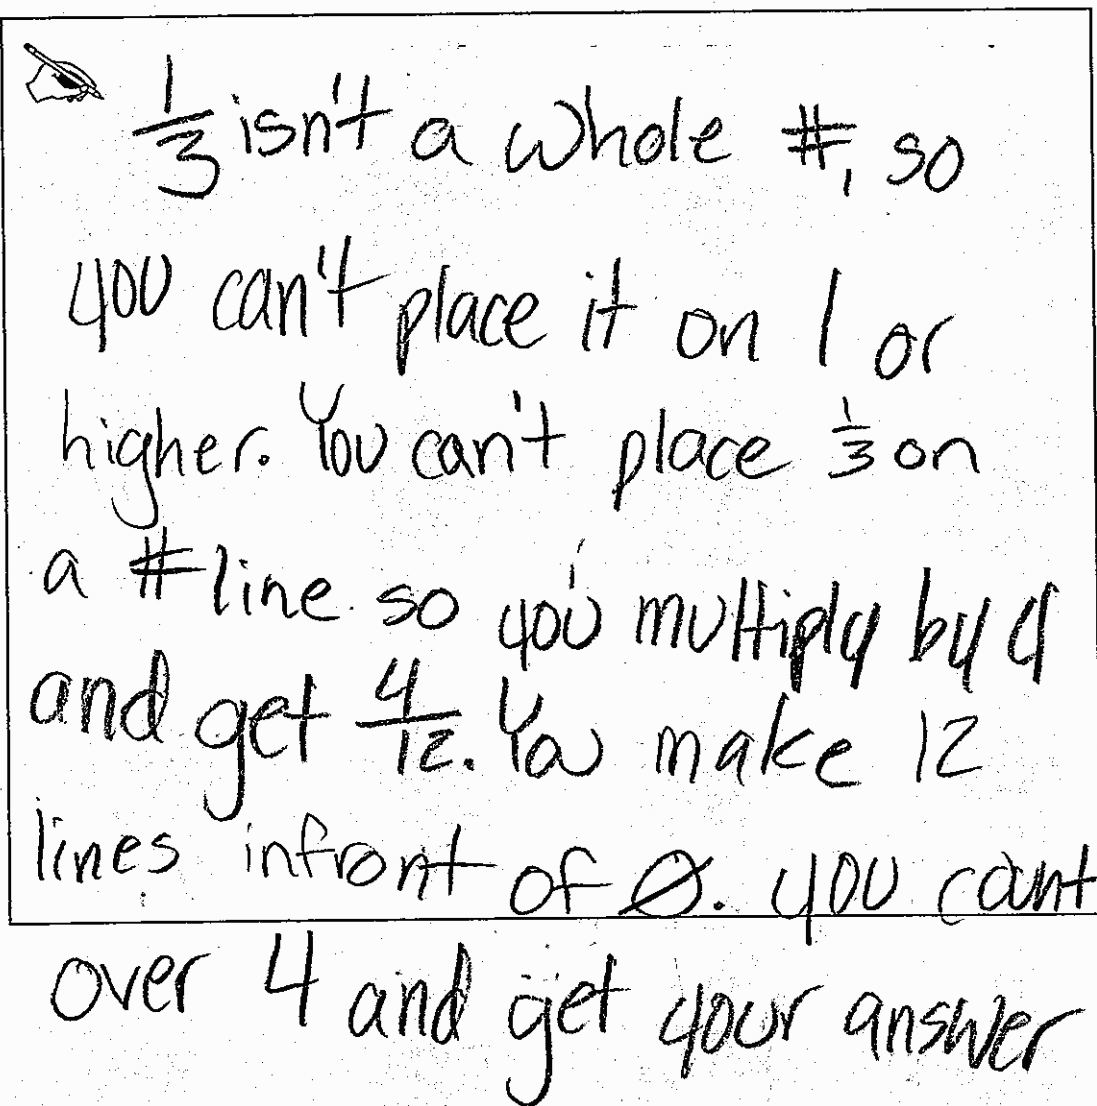 1/3 isn't a whole #, so
you can't place it on 1 or
higher. You can't place 1/3 on
a # line so you multiply by 4
and get 4/12. You make 12
lines infront of 0. you count
over 4 and get your answer